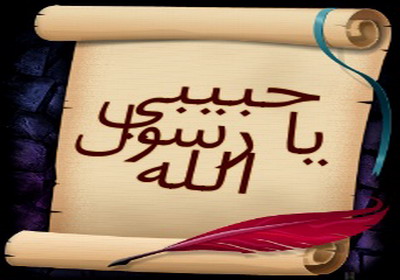 حبيبي
يا رسول
الله